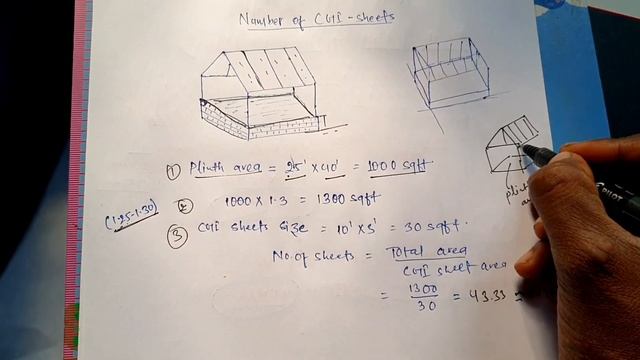 Number of CGI-sheets
① Plinth area = 25' × 40' = 1000 sqft
(1.25-1.30) ② 1000 × 1.3 = 1300 sqft
③ CGI sheets size = 10' × 3' = 30 sqft.
No. of sheets = Total area
CGI sheet area
= 1300
30 = 43.33 =
plinth
PILOT